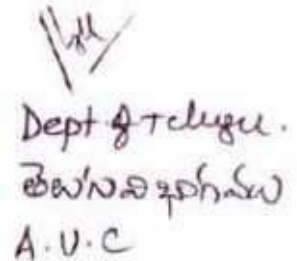 Dept of Telugu.
తెలుగు విభాగము
A.U.C